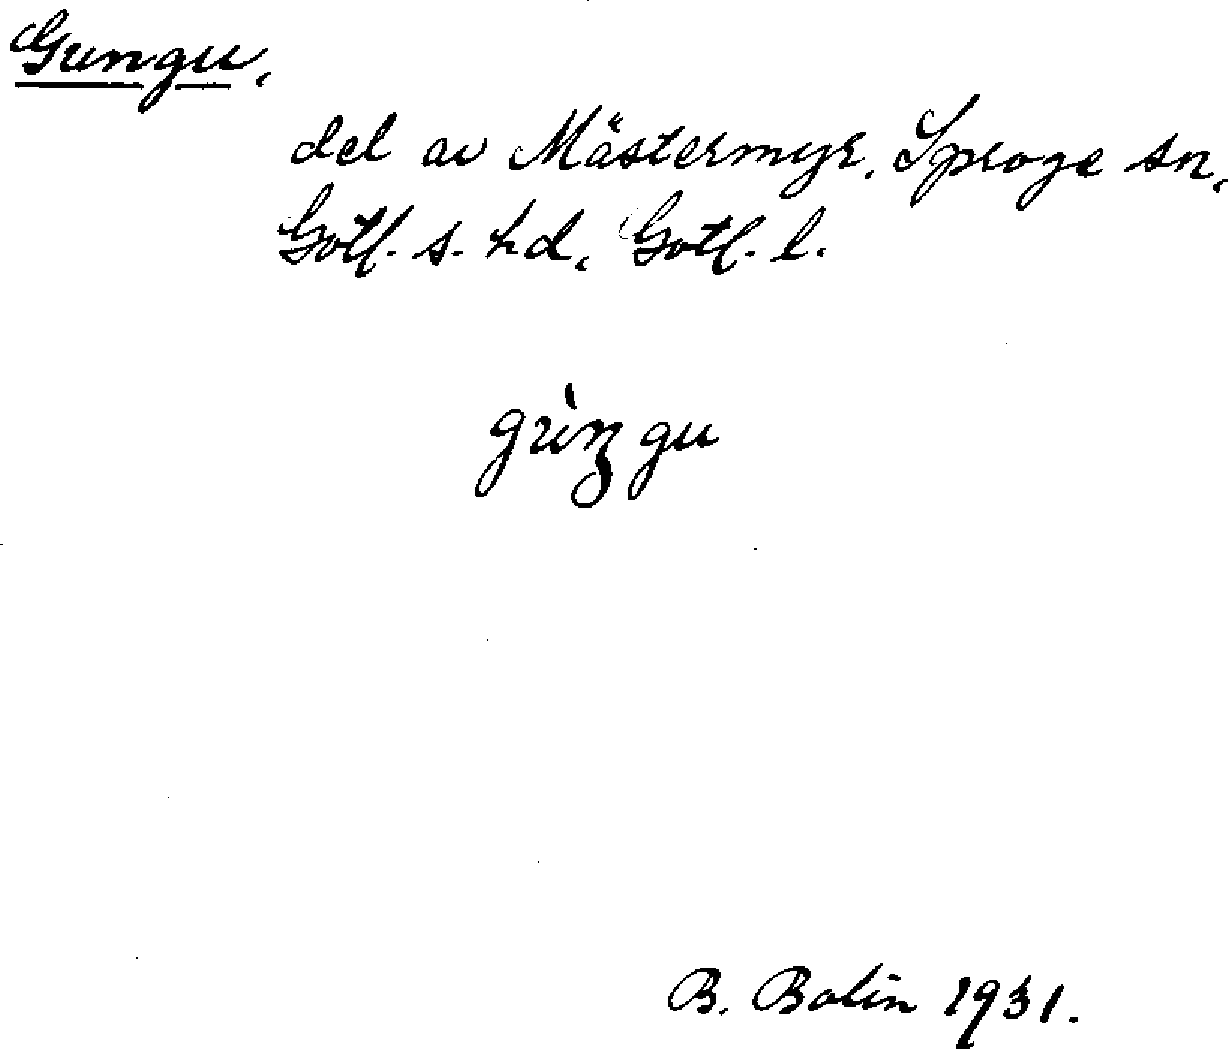 Gungu,
del av Mästermyr, Sproge sn,
Gotl. s. hd, Gotl. l.
gùŋgu
B. Bolin 1931.